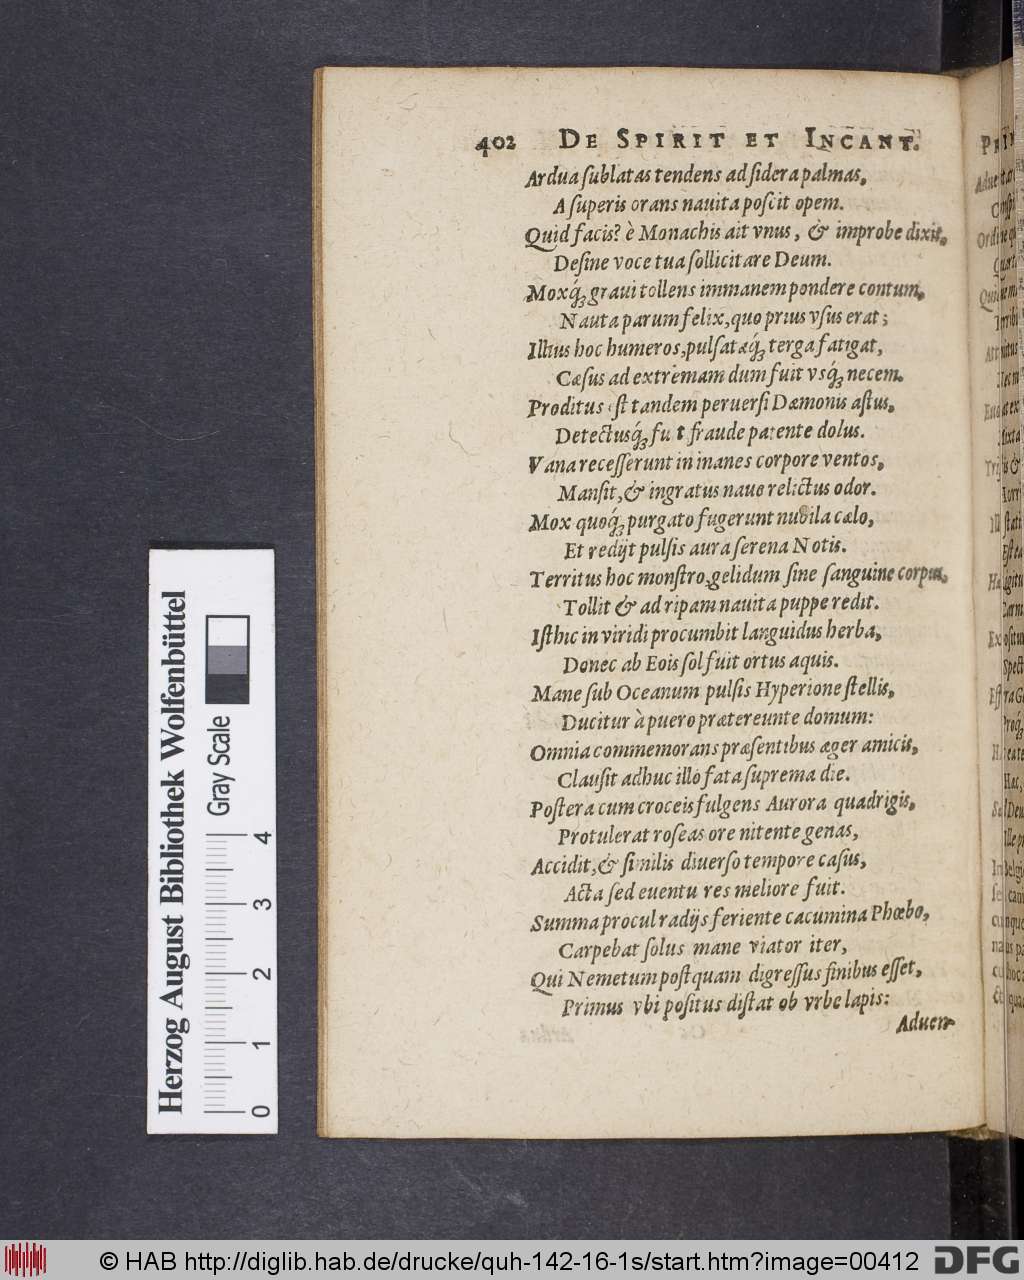 402 DE SPIRIT ET INCANT.
Ardua ſublatas tendens ad ſidera palmas,
A ſuperis orans nauita poſcit opem.
Quid facis? è Monachis ait vnus, & improbe dixit,
Deſine voce tua ſollicitare Deum.
Moxq́ꝫ graui tollens immanem pondere contum,
Nauta parum felix, quo prius vſus erat;
Illius hoc humeros, pulſatæq́ꝫ terga fatigat,
Cæſus ad extremam dum fuit vsq́ꝫ necem.
Proditus eſt tandem peruerſi Dæmonis aſtus,
Detectusq́ꝫ fuit fraude patente dolus.
Vana receſſerunt in inanes corpore ventos,
Manſit, & ingratus naue relictus odor.
Mox quoq́ꝫ purgato fugerunt nubila cælo,
Et redijt pulſis aura ſerena Notis.
Territus hoc monſtro, gelidum ſine ſanguine corpus,
Tollit & ad ripam nauita puppe redit.
Iſthic in viridi procumbit languidus herba,
Donec ab Eois ſol fuit ortus aquis.
Mane ſub Oceanum pulſis Hyperione ſtellis,
Ducitur à puero prætereunte domum:
Omnia commemorans præſentibus æger amicis,
Clauſit adhuc illo fata ſuprema die.
Poſtera cum croceis fulgens Aurora quadrigis,
Protulerat roſeas ore nitente genas,
Accidit, & ſimilis diuerſo tempore caſus,
Acta ſed euentu res meliore fuit.
Summa procul radijs feriente cacumina Phœbo,
Carpebat ſolus mane viator iter,
Qui Nemetum poſtquam digreſſus finibus eſſet,
Primus vbi poſitus diſtat ob vrbe lapis:
Aduen-
Herzog August Bibliothek Wolfenbüttel
Gray Scale
0 1 2 3 4
© HAB http://diglib.hab.de/drucke/quh-142-16-1s/start.htm?image=00412
DFG